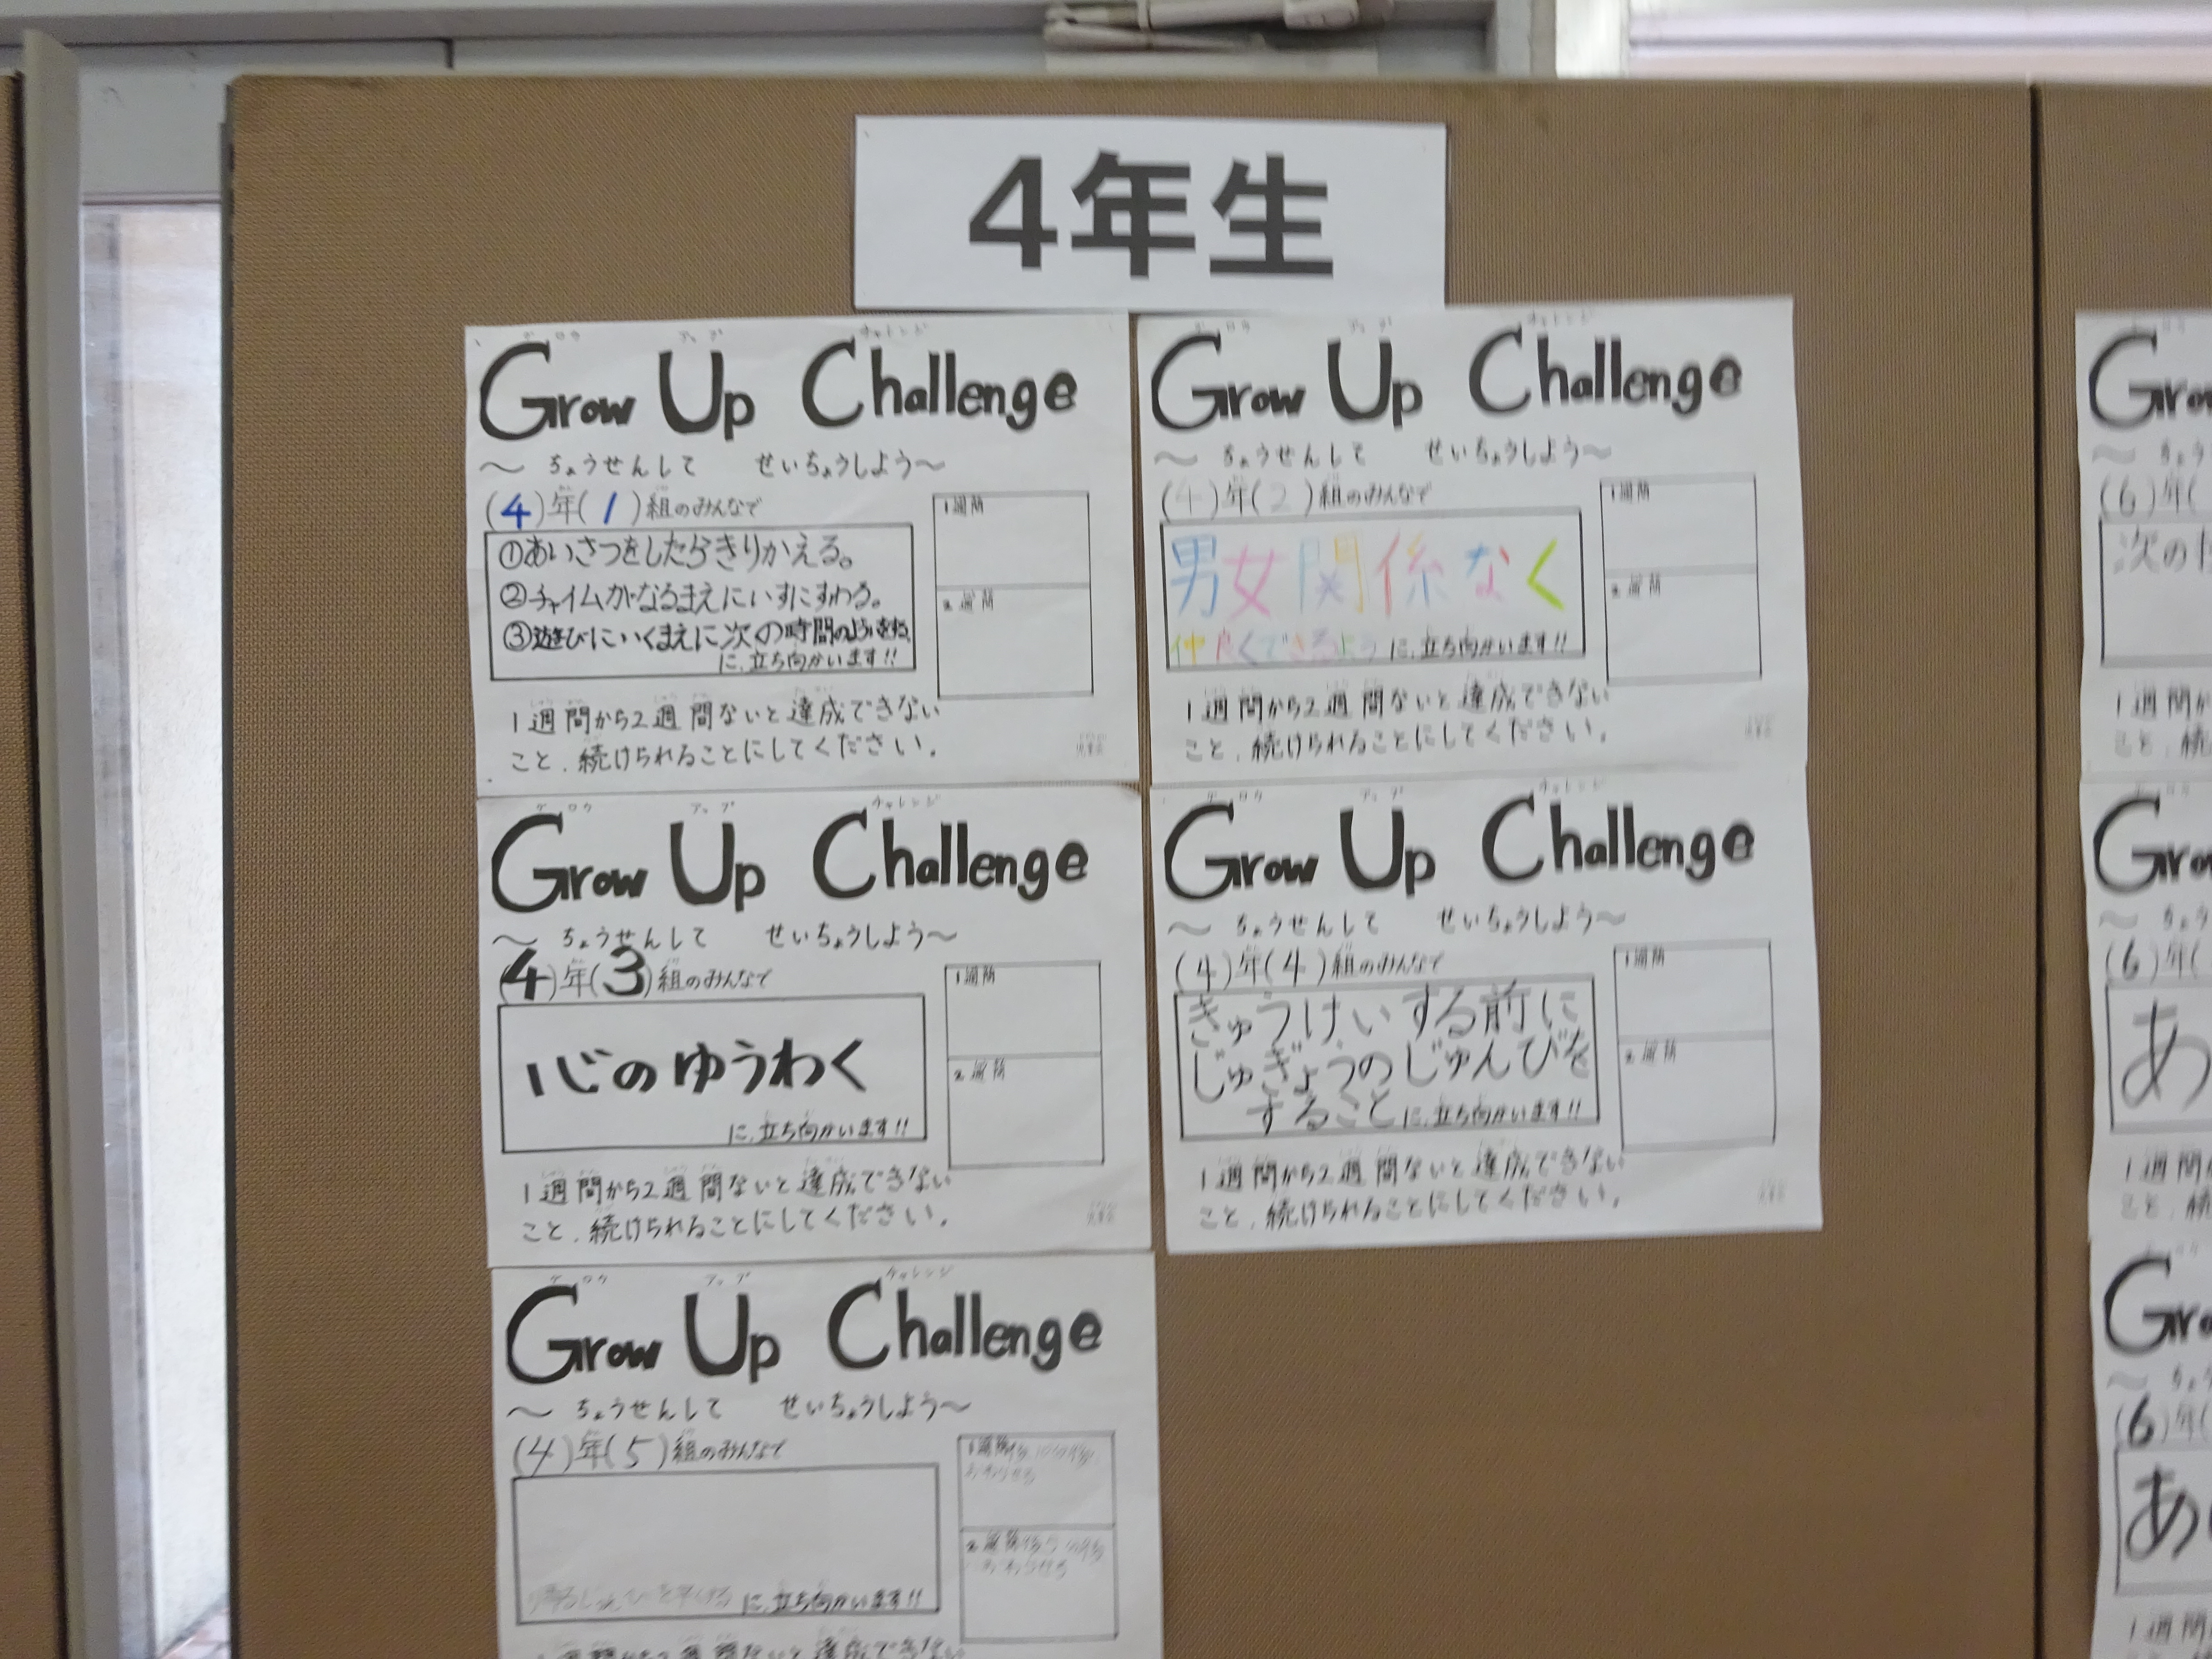 4年生
グロウ アップ チャレンジ
Grow Up Challenge
〜 ちょうせんして せいちょうしよう〜
(4)年(1)組のみんなで
①あいさつをしたらきりかえる。
②チャイムがなるまえにいすにすわる。
③遊びにいくまえに次の時間の
に、立ち向かいます!!
1週間
2週間
1週間から2週間ないと達成できない
こと、続けられることにしてください。
グロウ アップ チャレンジ
Grow Up Challenge
〜 ちょうせんして せいちょうしよう〜
(4)年(2)組のみんなで
男女関係なく
仲良くできるよう に、立ち向かいます!!
1週間
2週間
1週間から2週間ないと達成できない
こと、続けられることにしてください。
グロウ アップ チャレンジ
Grow Up Challenge
〜 ちょうせんして せいちょうしよう〜
(4)年(3)組のみんなで
心のゆうわく
に、立ち向かいます!!
1週間
2週間
1週間から2週間ないと達成できない
こと、続けられることにしてください。
グロウ アップ チャレンジ
Grow Up Challenge
〜 ちょうせんして せいちょうしよう〜
(4)年(4)組のみんなで
きゅうけいする前に
じゅぎょうのじゅんびを
すること に、立ち向かいます!!
1週間
2週間
1週間から2週間ないと達成できない
こと、続けられることにしてください。
グロウ アップ チャレンジ
Grow Up Challenge
〜 ちょうせんして せいちょうしよう〜
(4)年(5)組のみんなで
に、立ち向かいます!!
1週間
おわらせる
2週間
おわらせる
1週間から2週間ないと達成できない
(6)年(
次の
1週間
(6)年(
あ
1週間
(6)年(
あ
1週間